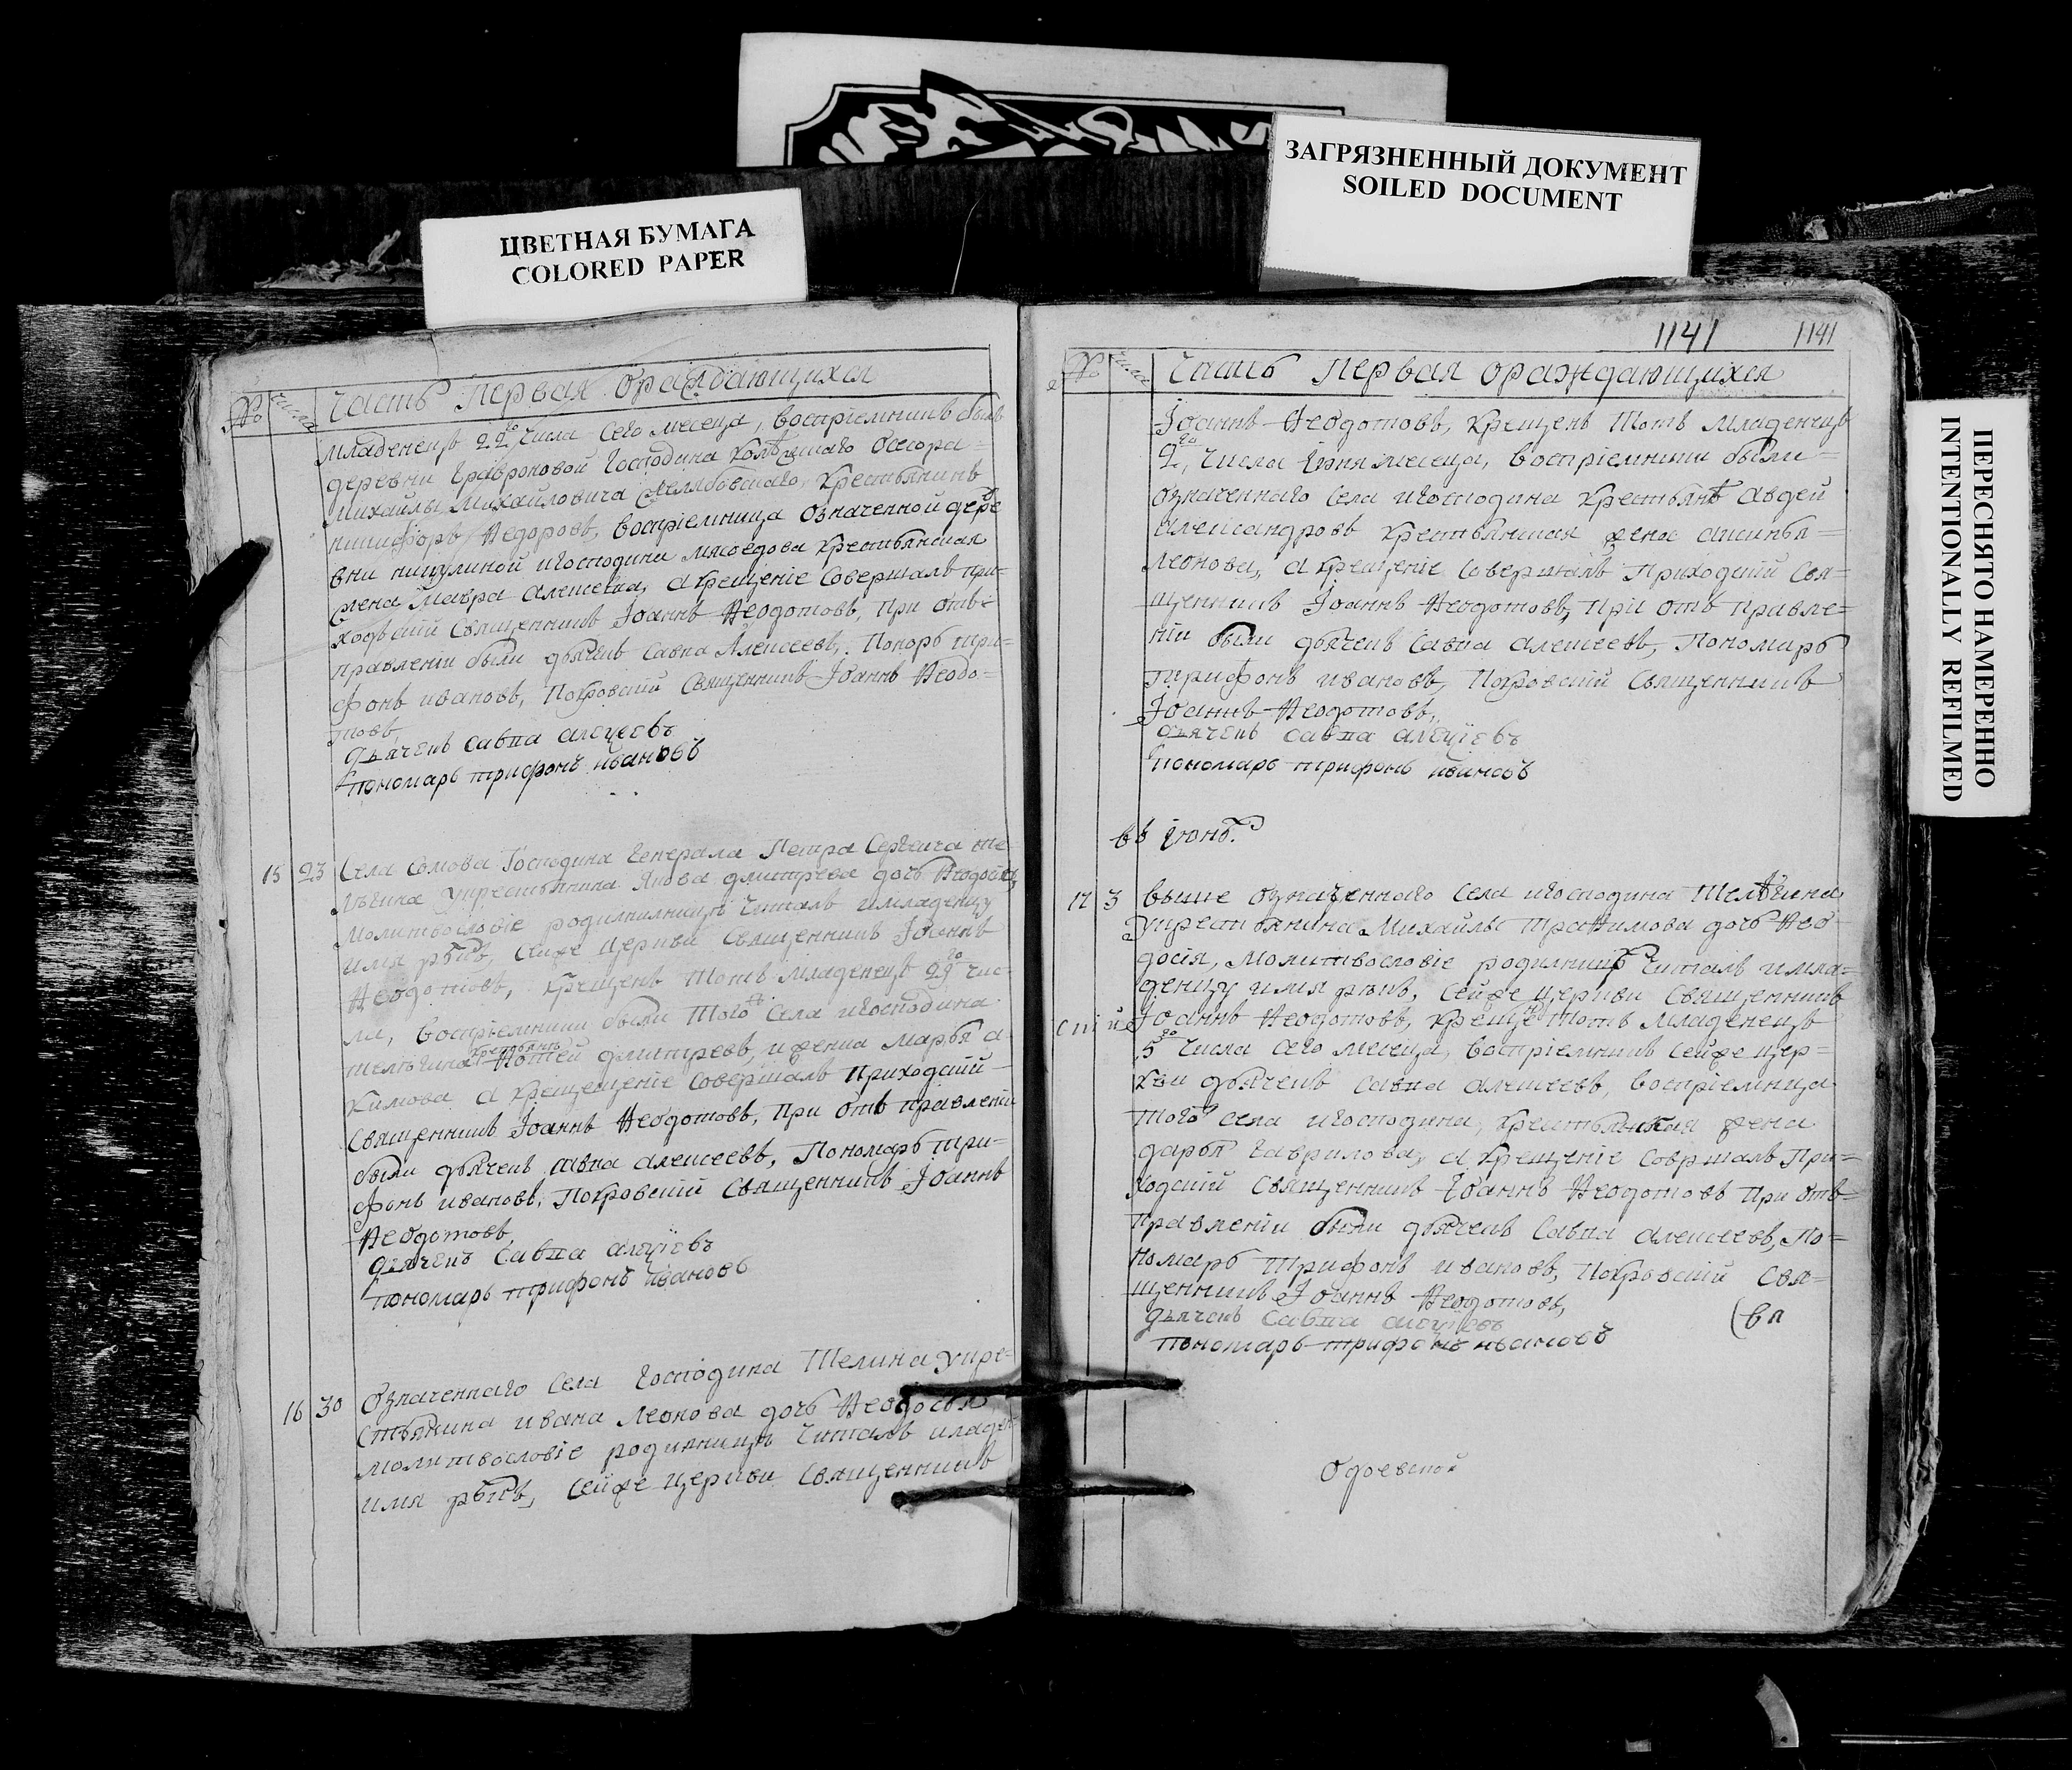 ЗАГРЯЗНЕННЫЙ ДОКУМЕНТ
SOILED DOCUMENT
ЦВЕТНАЯ БУМАГА
COLORED PAPER
ПЕРЕСНЯТО НАМЕРЕННО
INTENTIONALLY REFILMED
№ числа Часть Первая ораждающихся
младенецъ 22го числа сего месеца, восприемникъ былъ
деревни Господина
Михайлы Михайловича крестьянинъ
никифоръ Ѳедоровъ, восприемница означенной дере
вни никулиной игосподина мясоедова крестьянская
жена Мавра алексеева, а крещенiе совершалъ при-
ходскiй священникъ Iоаннъ Ѳеодотовъ, при отъ-
правленiи были дьячекъ савва Алексеевъ, Понорь три-
фонъ ивановъ, Покровскiй священникъ Iоаннъ Ѳеодо-
товъ,
дьячекъ савва алеѯiевъ
пономарь трифонъ ивановъ
15 23 Села Сомова Господина Генерала Петра Сергеича те
лѣгина укрестьянина Якова дмитрева дочь Ѳеодосiя,
молитвословiе читалъ имладенцу
имя рѣкъ, сейже церкви священникъ Iоаннъ
Ѳеодотовъ, крещенъ тотъ младенецъ 29го чис-
ла, восприемники были того села игосподина
телѣгина крестьянъ дмитревъ, и жена марья а-
кимова а крещещенiе совершалъ приходскiй
священникъ Iоаннъ Ѳеодотовъ, при отъ правленiи
были дьячекъ савва алексеевъ, Пономарь три-
фонъ ивановъ, Покровскiй священникъ Iоаннъ
Ѳеодотовъ,
дьячекъ савва алеѯiевъ
пономарь трифонъ ивановъ
16 30 Означеннаго села господина Телина укре-
стьянина ивана леонова дочь Ѳеодосья
молитвословiе родилницѣ читалъ
имя рѣкъ, сейже церкви священникъ
1141 1141
№ числа Часть Первая ораждающихся
Iоаннъ Ѳеодотовъ, крещенъ тотъ младенецъ
2го, числа iюня месеца, восприемники были
означеннаго села игосподина крестьянъ авдей
александровъ крестьянская жена аксинья
леонова, а крещенiе совершалъ приходскiй свя-
щенникъ Iоаннъ Ѳеодотовъ, при отъ правле-
нiи были дьячекъ савва алексеевъ, Пономарь
трифонъ ивановъ, Покровскiй священникъ
Iоаннъ Ѳеодотовъ,
дьячекъ савва алеѯiевъ
пономарь трифонъ ивановъ
въ iюнѣ.
17 3 выше означеннаго села игосподина телѣгина
укрестьянина Михайлы траѳимова дочь Ѳео-
досiя, молитвословiе родилницѣ читалъ имла-
денцу имя рѣкъ, сейже церкви священникъ
Iоаннъ Ѳеодотовъ, крещенъ тотъ младенецъ
5го числа сего месеца, восприемникъ сейже цер-
кви дьячекъ савва алексеевъ, восприемница
того села игосподина, крестьянская жена
дарья гаврилова, а крещенiе совршалъ при-
ходскiй священникъ Iоаннъ Ѳеодотовъ при отъ-
правленiи были дьячекъ савва алексеевъ, по-
номарь трифонъ ивановъ, покровскiй свя-
щенникъ Iоаннъ Ѳеодотовъ,
дьячекъ савва алеѯiевъ
пономарь трифонъ ивановъ
Одоевской